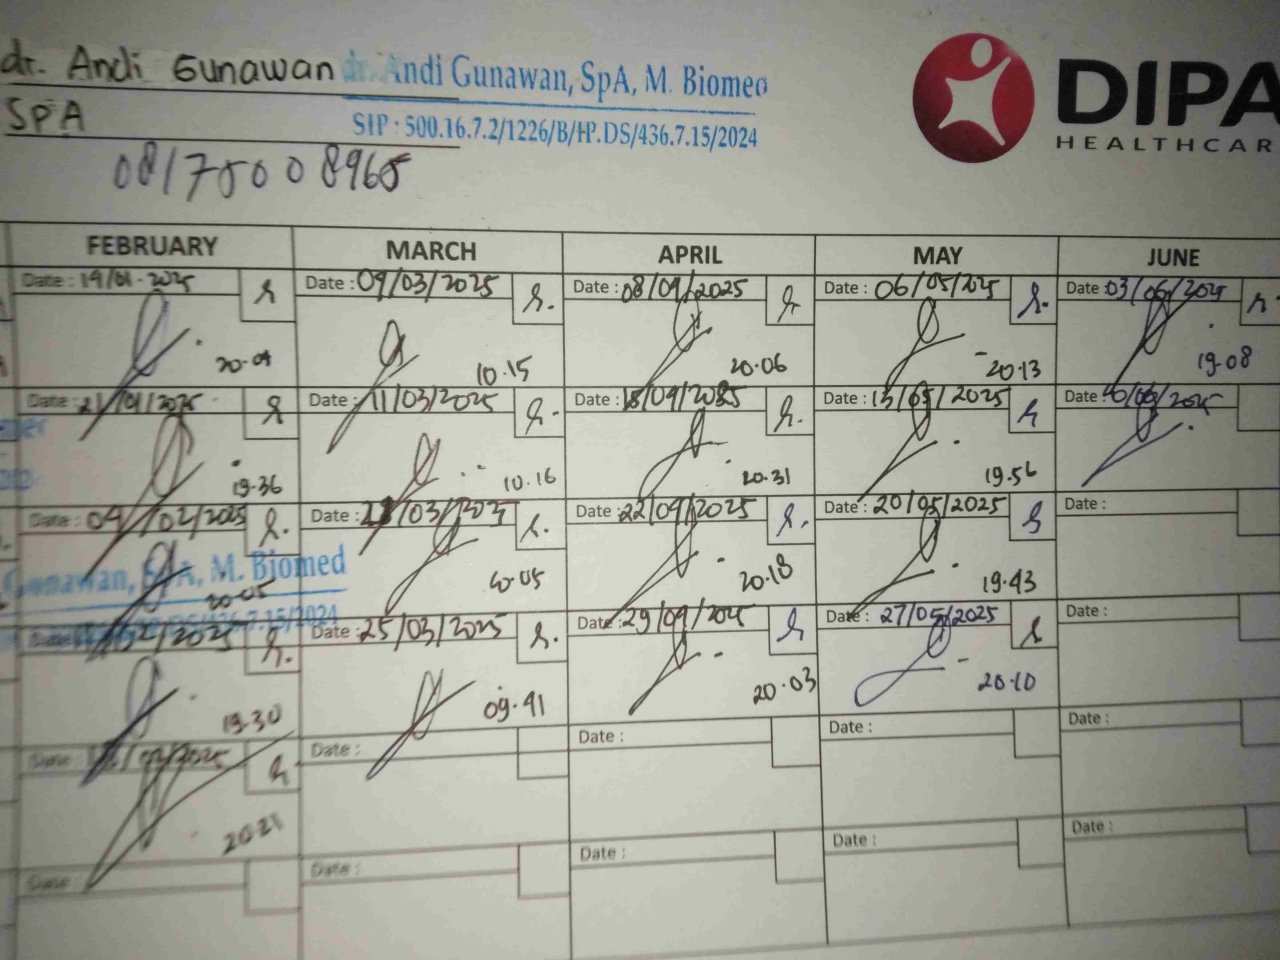 dr. Andi Gunawan
dr. Andi Gunawan, SpA, M. Biomed
SPA
SIP : 500.16.7.2/1226/B/IP.DS/436.7.15/2024
081750008965
DIPA
HEALTHCAR
FEBRUARY MARCH APRIL MAY JUNE
Date : 14/01-2025 Date : 09/03/2025 Date : 08/04/2025 Date : 06/05/2025 Date : 03/06/2025
20.04 10.15 20.06 20.13 19.08
Date : 21/01/2025 Date : 11/03/2025 Date : /04/20 Date : 13/05/2025 Date : /06/2025
19.36 10.16 20.31 19.56
Date : 04/02/2025 Date : /03/2025 Date : 22/04/2025 Date : 20/05/2025 Date :
Gunawan, SpA, M. Biomed
20.05 20.05 20.18 19.43
/436.7.15/2024
/2025 Date : 25/03/2025 Date : 29/04/2025 Date : 27/05/2025 Date :
19.30 09.41 20.03 20.10
Date : /02/2025 Date : Date : Date : Date :
20.21
Date : Date : Date : Date : Date :